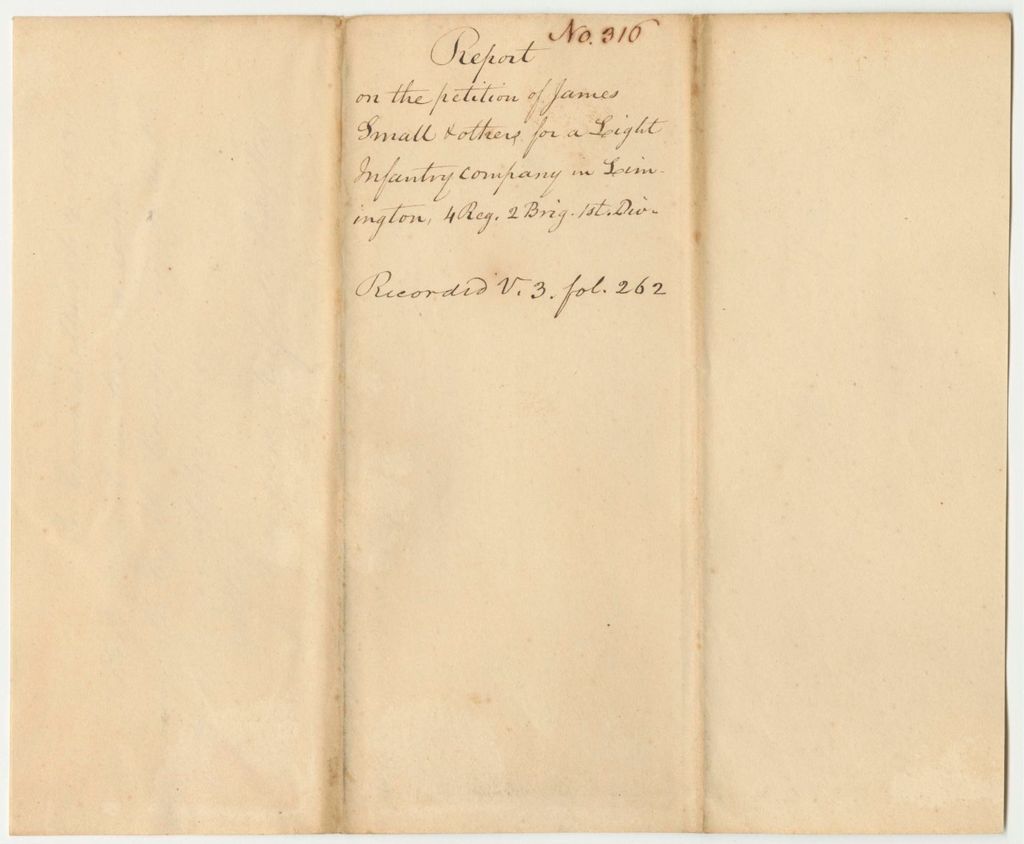 No. 316
Report
on the petition of James
Small & others for a Light
Infantry company in Lim-
ington, 4 Reg. 2 Brig. 1st. Div.
Recorded V. 3. fol. 262